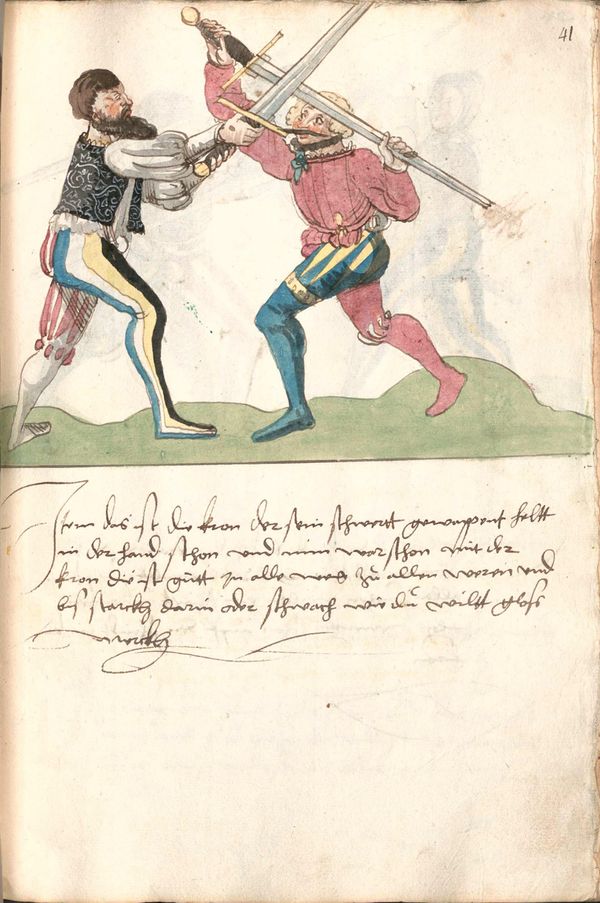 41
Item das ist die kron der sein schwertt gewappent heltt
in der hand schon und nim war schon mit der
kron die ist gutt zu alle weg zu allen weren und
bis starckh darin oder schwach wie du wiltt gloss
merckh